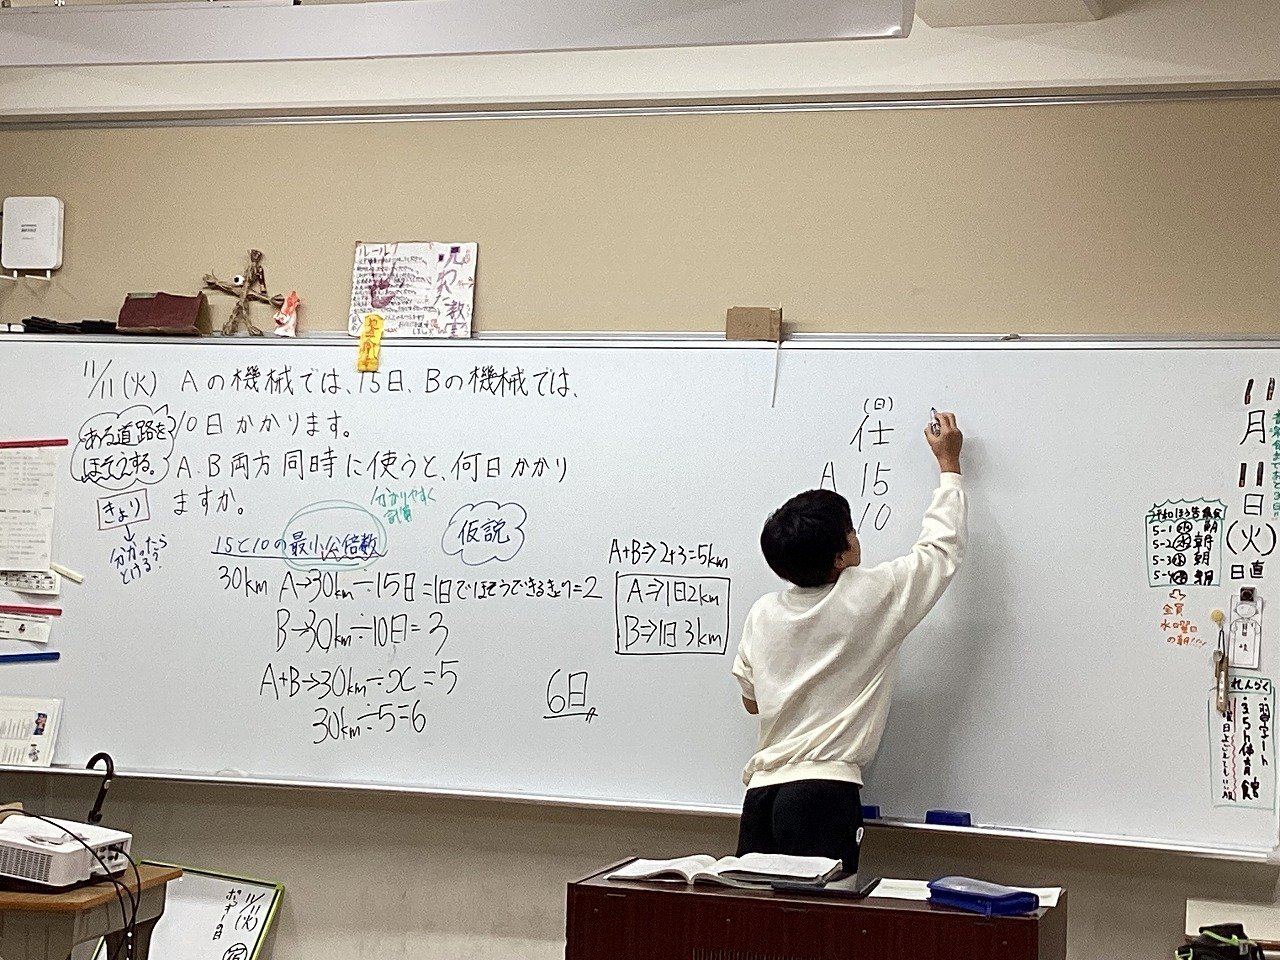 ルール7
11/11(火) Aの機械では、15日、Bの機械では、
10日かかります。
A.B両方同時に使うと、何日かかり
ますか。
ある道路を
ほそうする。
きょり
↓
分かったら
とける?
分かりやすく
計算
15と10の最小公倍数
仮説
30km A→30km÷15日=1日でほそうできるきょり=2
B→30km÷10日=3
A+B→30km÷x=5
30km÷5=6
6日
A+B⇒2+3=5km
A⇒1日2km
B⇒1日3km
(日)
仕
A 15
10
11月11日(火)
日直
5-1 水 朝
5-2 水 朝
5-3 水 朝
5-4 水 朝
全員
水曜日
の朝!!!
れんらく
11/11(火)